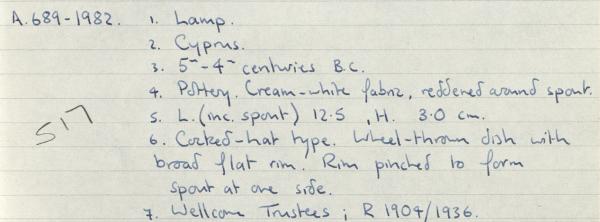 A.689-1982. 1. Lamp.
2. Cyprus.
3. 5th-4th centuries B.C.
4. Pottery. Cream-white fabric, reddened around spout.
517
5. L. (inc. spout) 12.5, H. 3.0 cm.
6. Cocked-hat type. Wheel-thrown dish with
broad flat rim. Rim pinched to form
spout at one side.
7. Wellcome Trustees; R 1904/1936.